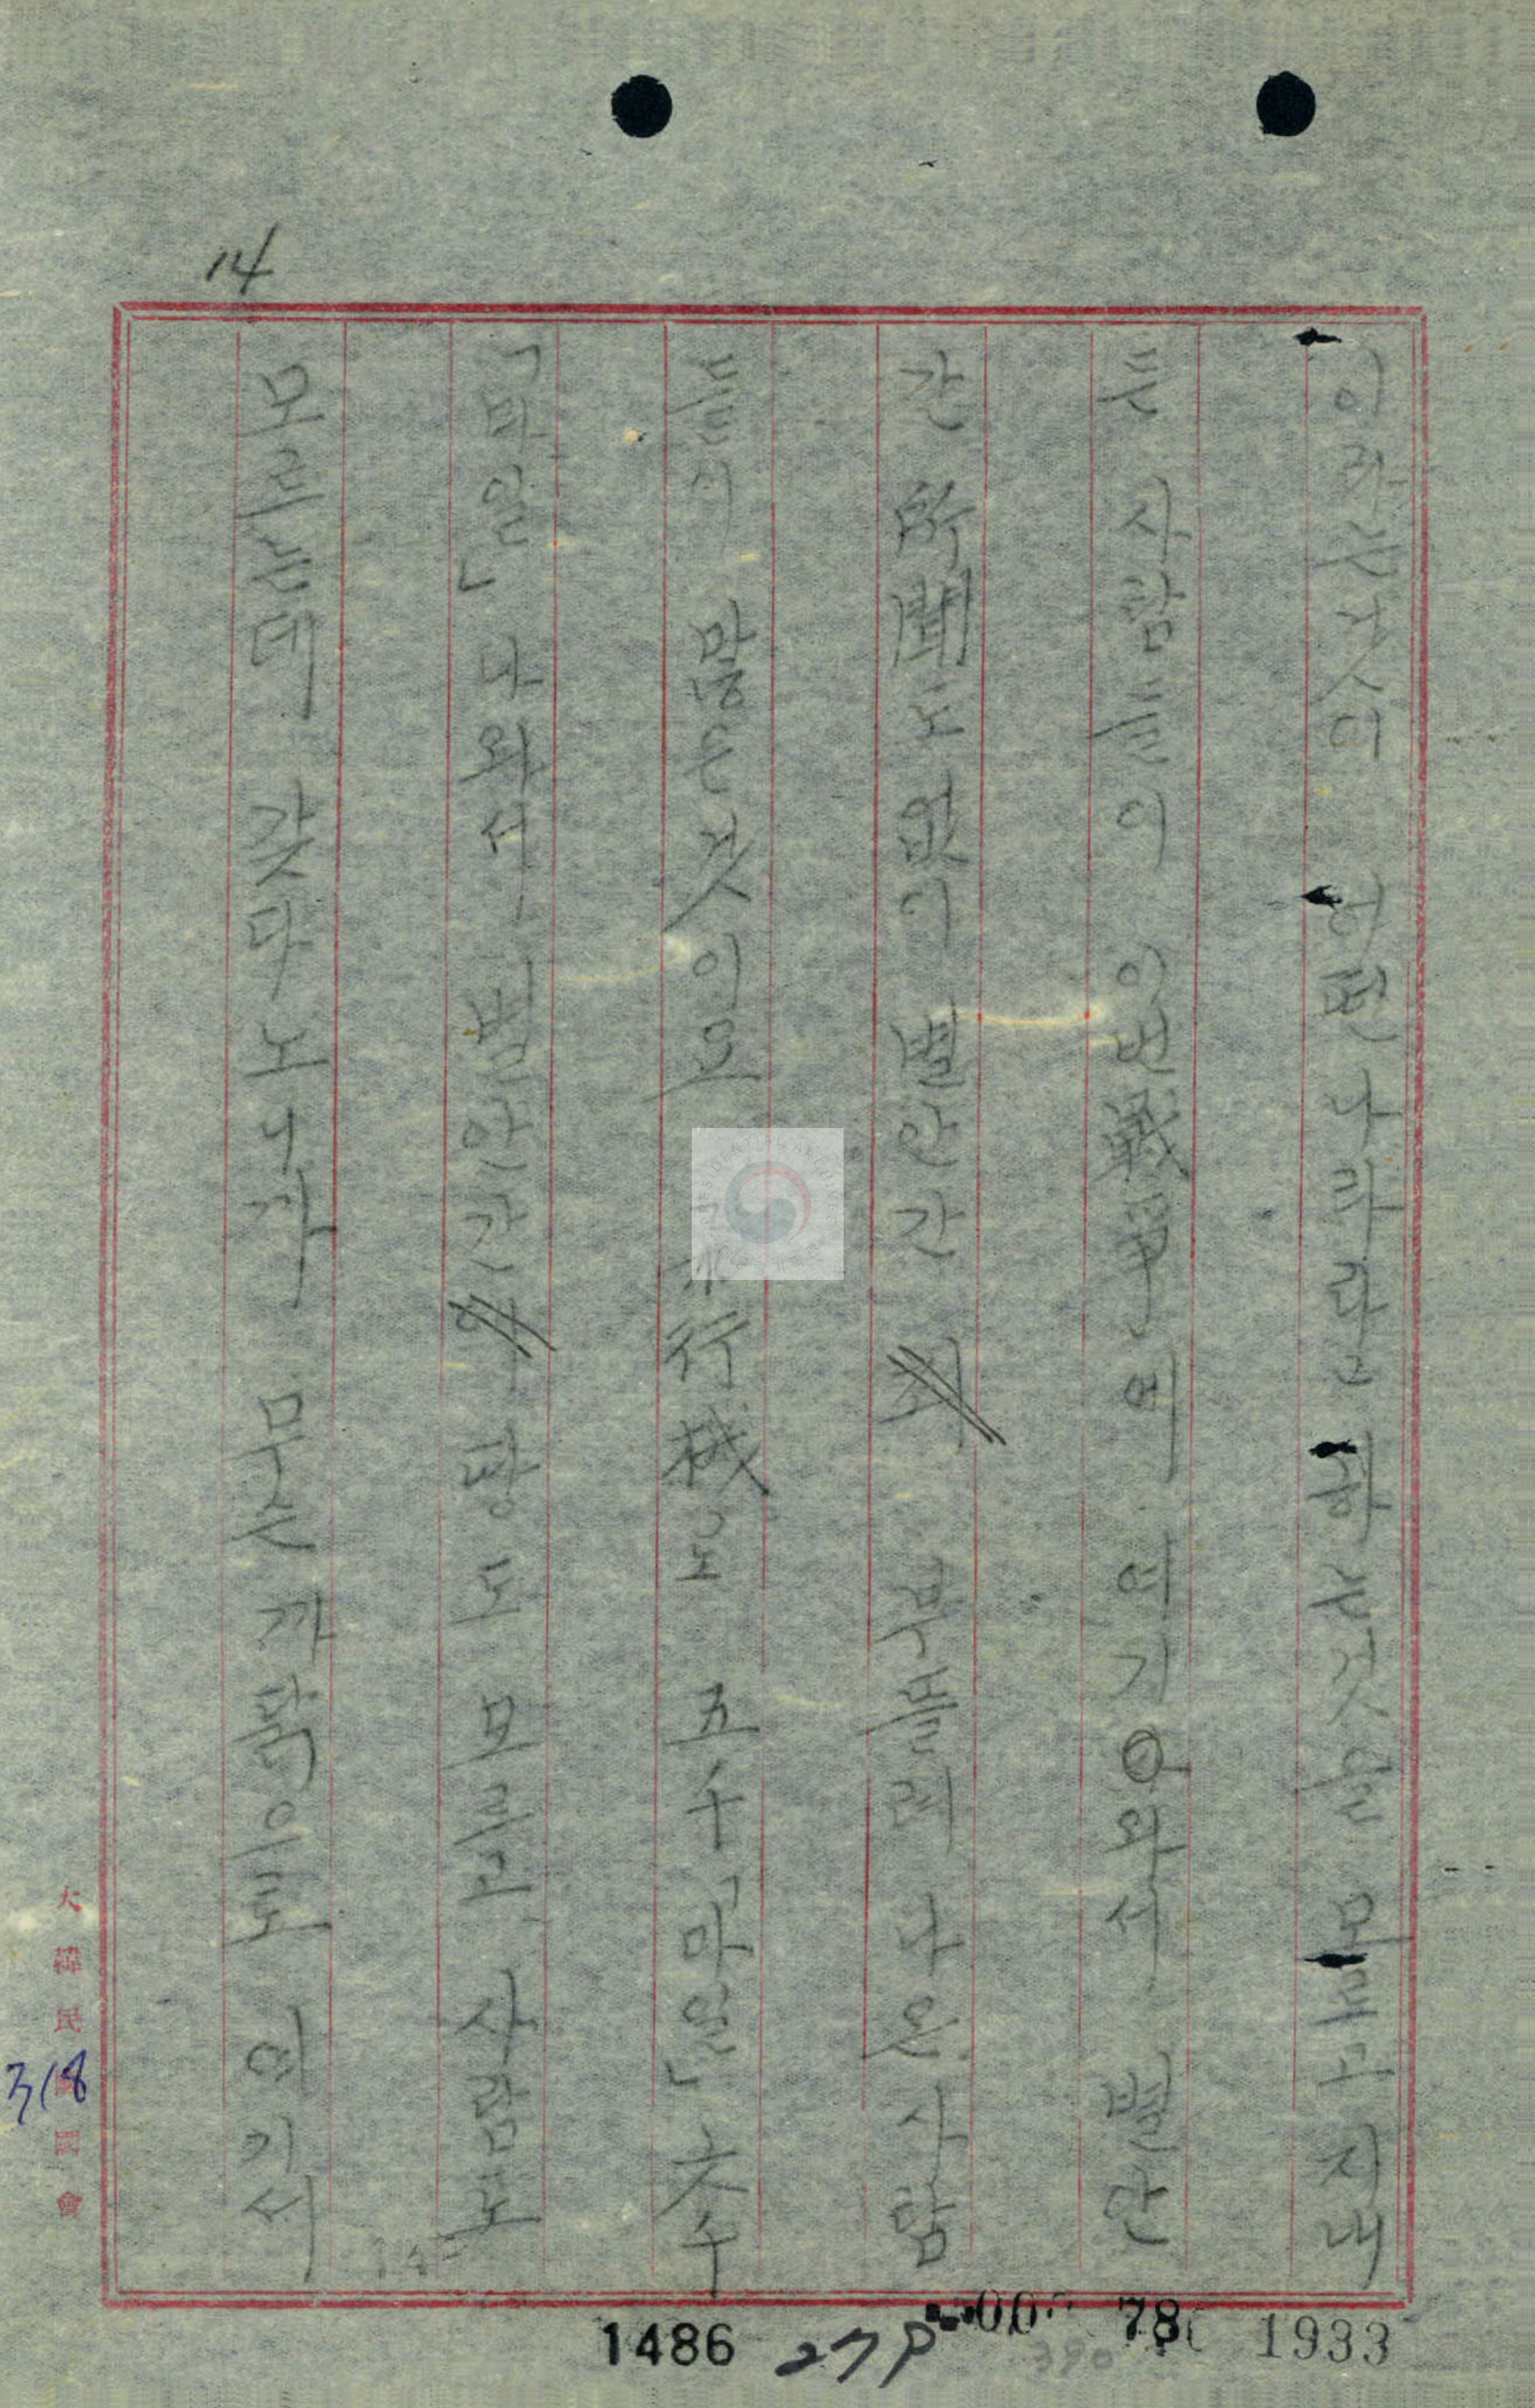 14
이라는것이 어떤나라라고 하는것을 모르고 지내
든 사람들이 이번 戰爭에 여기 와서 별안
간 所聞도 없이 별안간 부뜰려 나온 사람
들이 많은 것이요 飛行機로 五千「마일」六千
「마일」 나와서 벌안간 땅도 모르고 사람도
모르는데 갖다노니까 무슨 까닭으로 여기서
大韓民國國會
318
1486 27P 78 1933